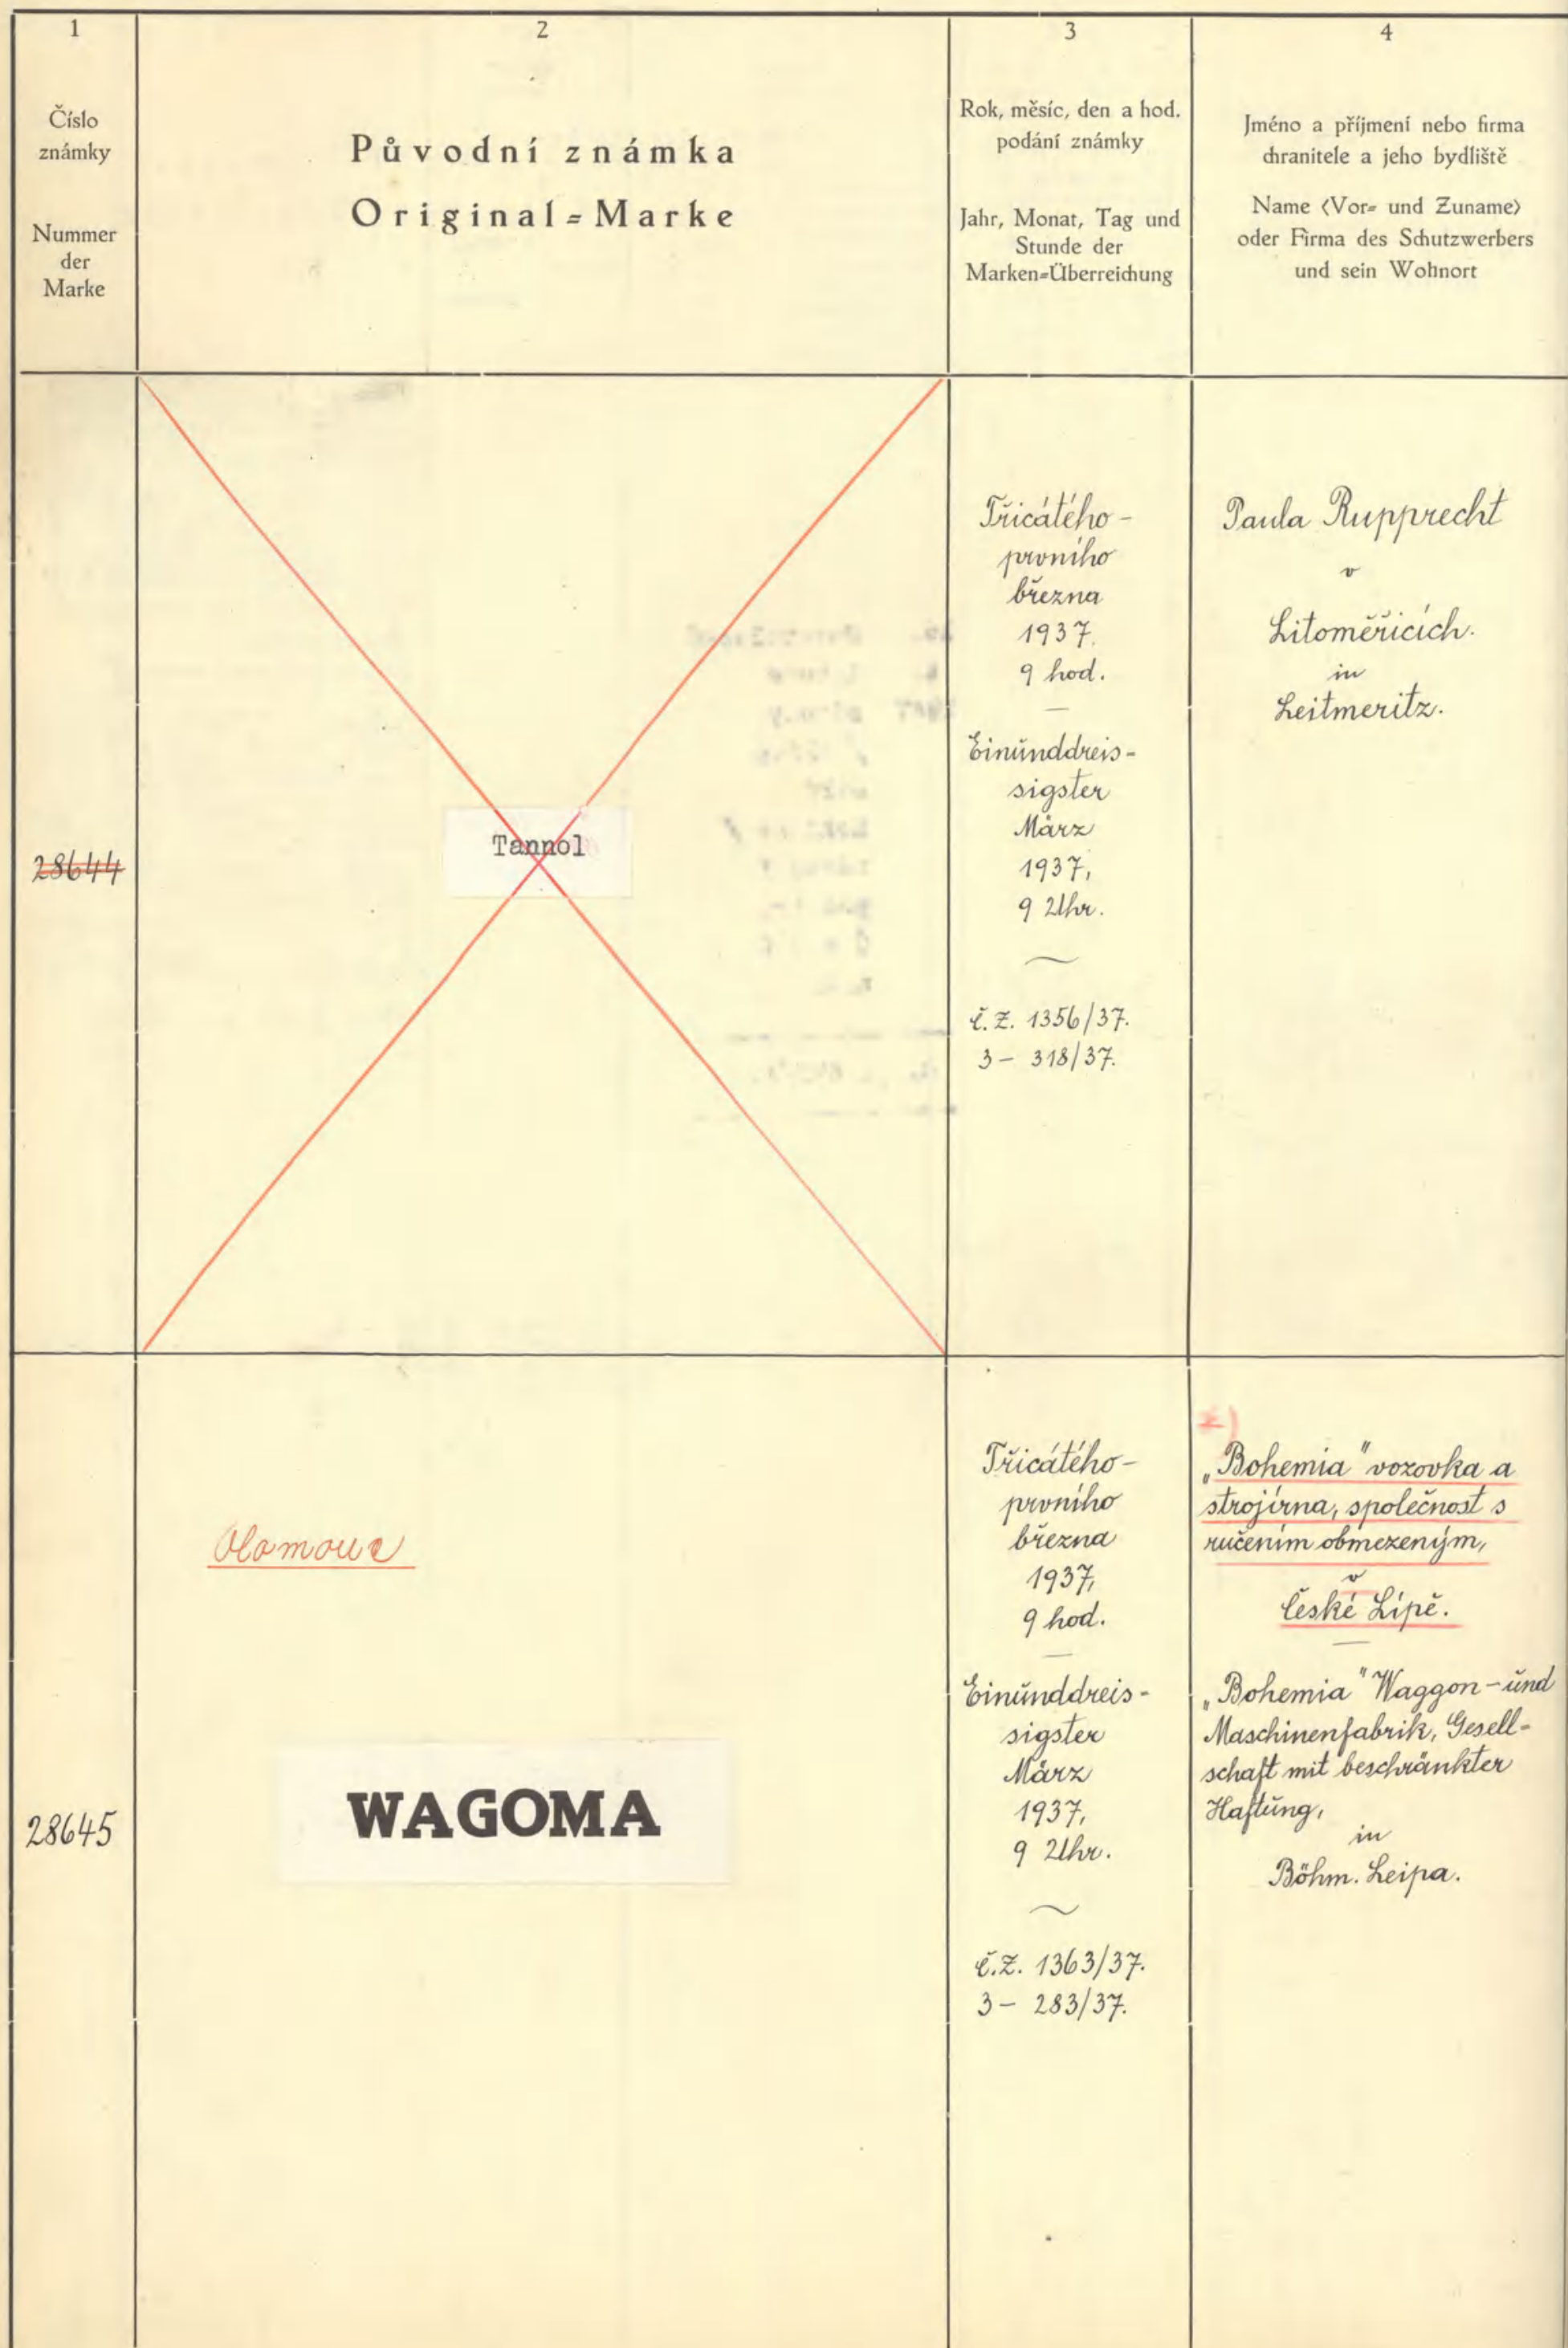 1
Číslo
známky
Nummer
der
Marke
2
Původní známka
Original=Marke
3
Rok, měsíc, den a hod.
podání známky
Jahr, Monat, Tag und
Stunde der
Marken=Überreichung
4
Jméno a příjmení nebo firma
chranitele a jeho bydliště
Name (Vor= und Zuname)
oder Firma des Schutzwerbers
und sein Wohnort
28644
Tannol
Třicátého-
prvního
března
1937.
9 hod.
Einunddreis-
sigster
März
1937,
9 Uhr.
č.z. 1356/37.
3- 318/37.
Paula Rupprecht
v
Litoměřicích.
in
Leitmeritz.
28645
Olomouc
WAGOMA
Třicátého-
prvního
března
1937,
9 hod.
Einunddreis-
sigster
März
1937,
9 Uhr.
č.z. 1363/37.
3- 283/37.
„Bohemia" vozovka a
strojírna, společnost s
ručením obmezeným,
v
České Lípě.
„Bohemia" Waggon-und
Maschinenfabrik, Gesell-
schaft mit beschränkter
Haftung,
in
Böhm. Leipa.